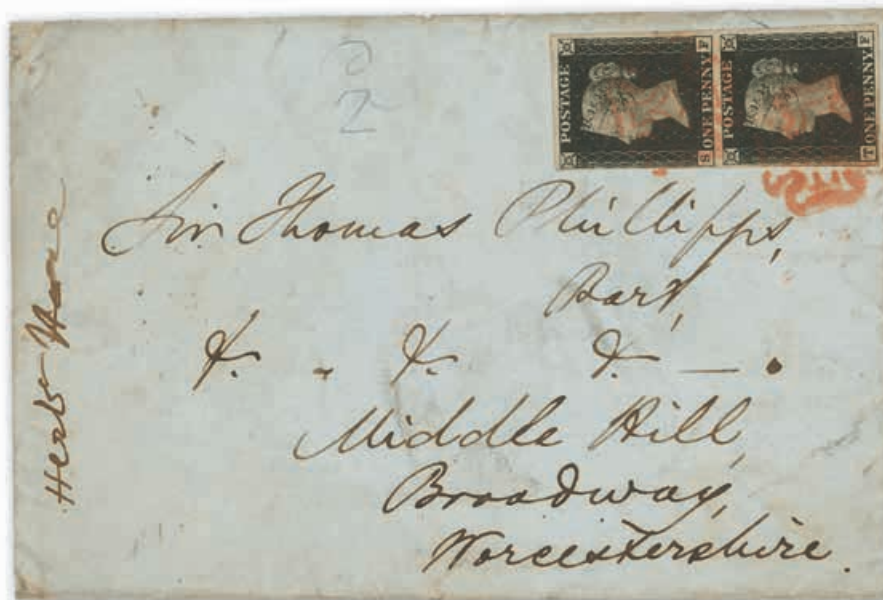 POSTAGE
ONE PENNY
S F
POSTAGE
ONE PENNY
T F
2
Sir Thomas Phillipps,
Bart,
&. &. &. — .
Middle Hill,
Broadway,
Worcestershire.